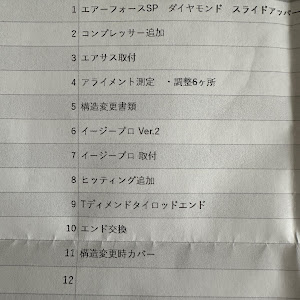 1 エアーフォースSP ダイヤモンド スライドアッパー
2 コンプレッサー追加
3 エアサス取付
4 アライメント測定 ・調整6ヶ所
5 構造変更書類
6 イージープロ Ver.2
7 イージープロ 取付
8 ヒッティング追加
9 Tディメンドタイロッドエンド
10 エンド交換
11 構造変更時カバー
12